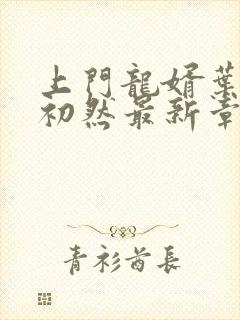 上門龍婿葉
初然最新章
青衫酋長